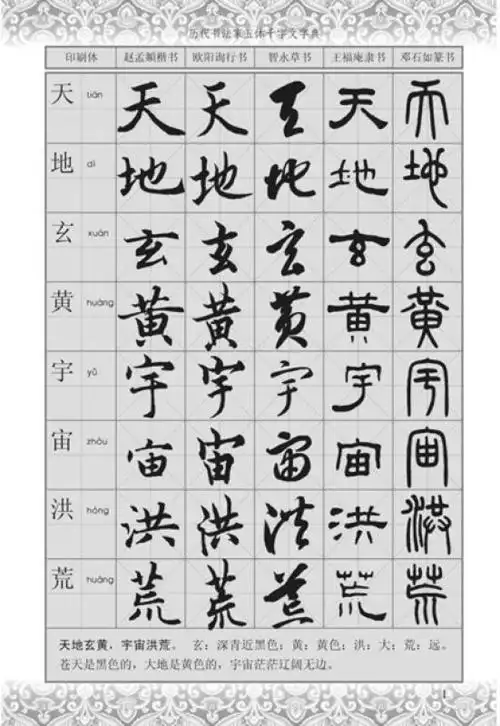 历代书法家五体千字文字典
印刷体 赵孟頫楷书 欧阳询行书 智永草书 王福庵隶书 邓石如篆书
天 tiān 天 天 天 天 天
地 dì 地 地 地 地 地
玄 xuán 玄 玄 玄 玄 玄
黄 huáng 黄 黄 黄 黄 黄
宇 yǔ 宇 宇 宇 宇 宇
宙 zhòu 宙 宙 宙 宙 宙
洪 hóng 洪 洪 洪 洪 洪
荒 huāng 荒 荒 荒 荒 荒
天地玄黄，宇宙洪荒。 玄：深青近黑色；黄：黄色；洪：大；荒：远。
苍天是黑色的，大地是黄色的，宇宙茫茫辽阔无边。
1